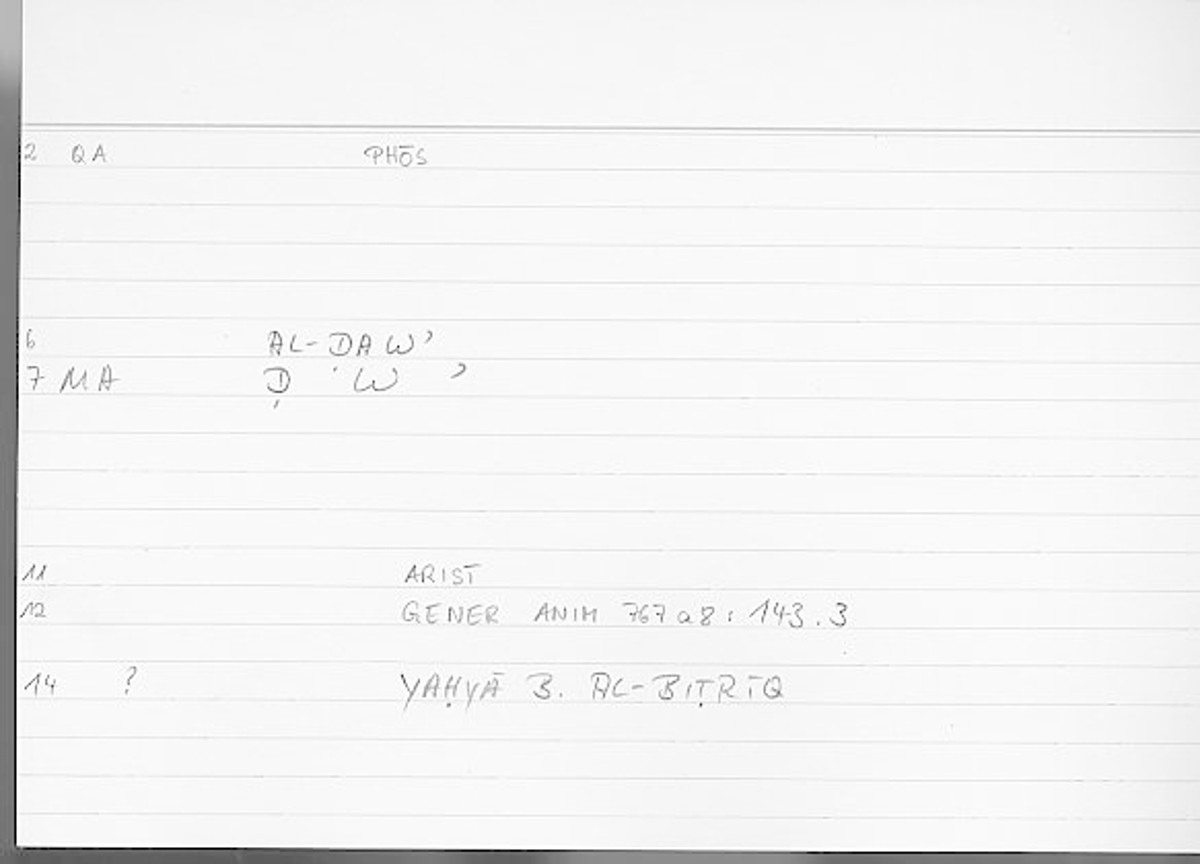 2 QA PHŌS
6 AL-DAWʾ
7 MA Ḍ W ʾ
11 ARIST
12 GENER ANIM 767a8 : 143.3
14 ? YAḤYĀ B. AL-BIṬRĪQ